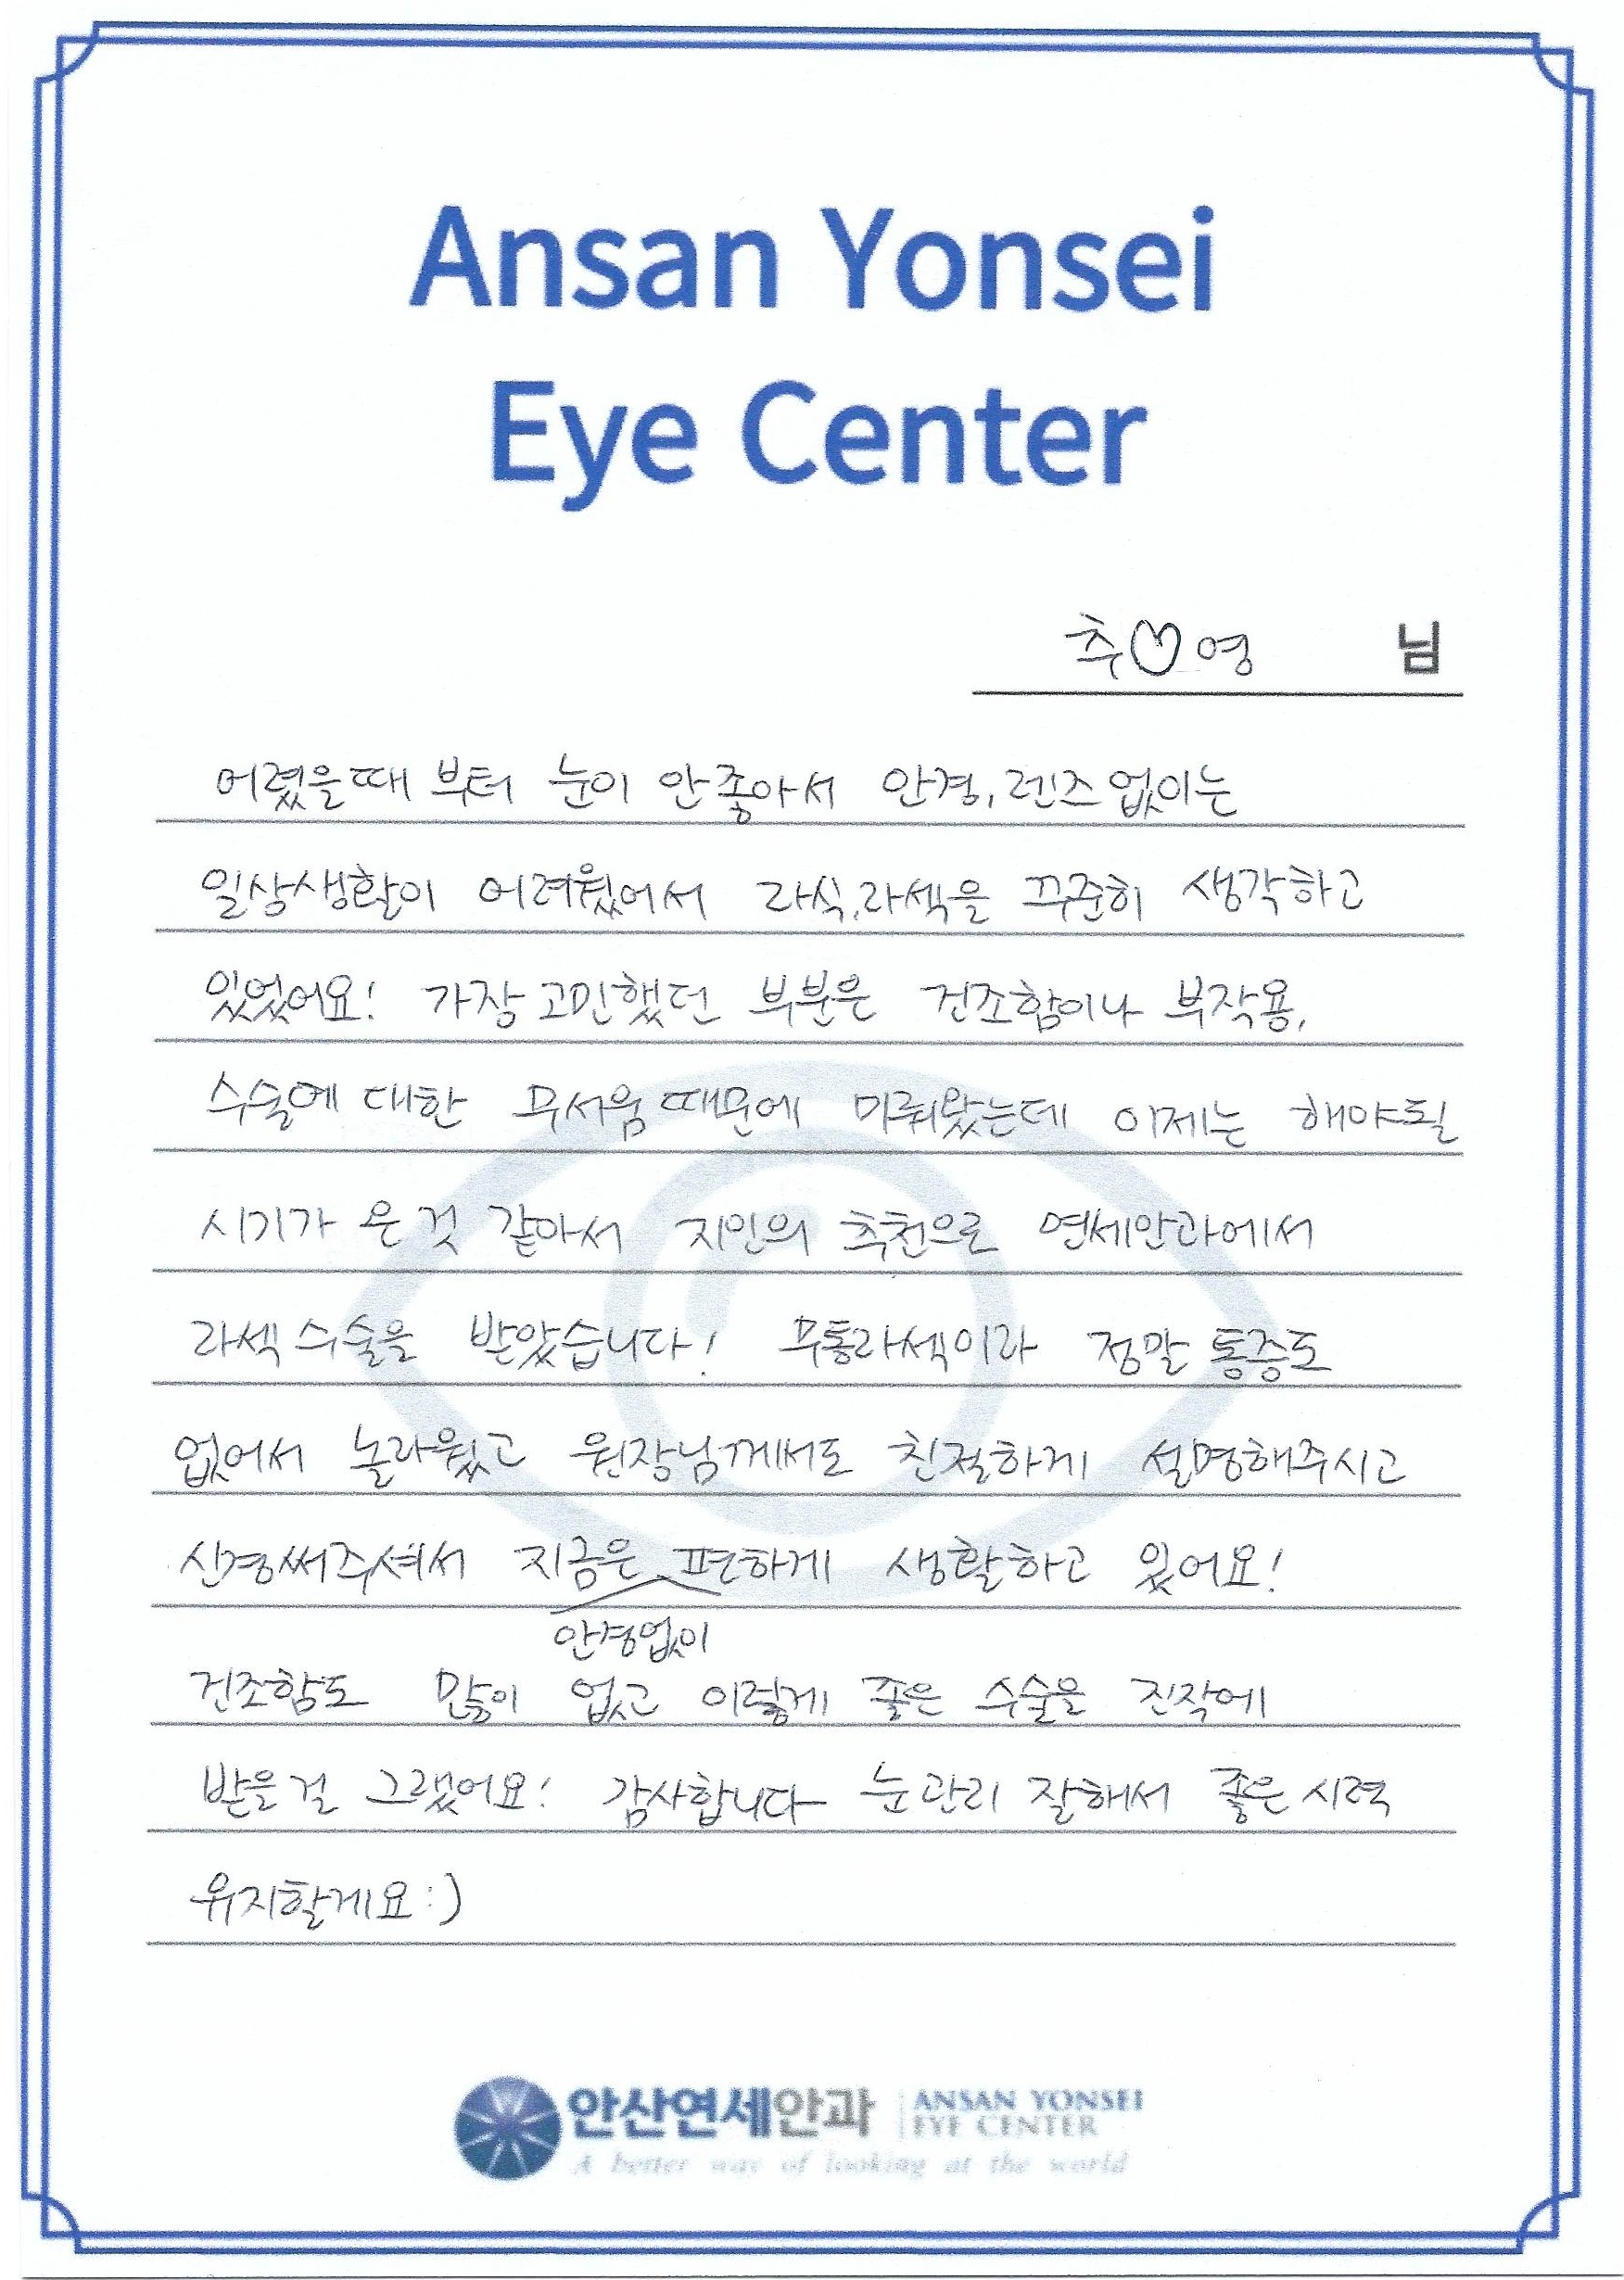 Ansan Yonsei
Eye Center
추♡영 님
어렸을때 부터 눈이 안좋아서 안경, 렌즈 없이는
일상생활이 어려웠어서 라식, 라섹을 꾸준히 생각하고
있었어요! 가장 고민했던 부분은 건조함이나 부작용,
수술에 대한 무서움 때문에 미뤄왔는데 이제는 해야될
시기가 온 것 같아서 지인의 추천으로 연세안과에서
라섹 수술을 받았습니다! 무통라섹이라 정말 통증도
없어서 놀라웠고 원장님께서도 친절하게 설명해주시고
신경써주셔서 지금은 편하게 생활하고 있어요!
안경없이
건조함도 많이 없고 이렇게 좋은 수술을 진작에
받을걸 그랬어요! 감사합니다 눈관리 잘해서 좋은 시력
유지할게요:)
안산연세안과 ANSAN YONSEI
EYE CENTER
A better way of looking at the world